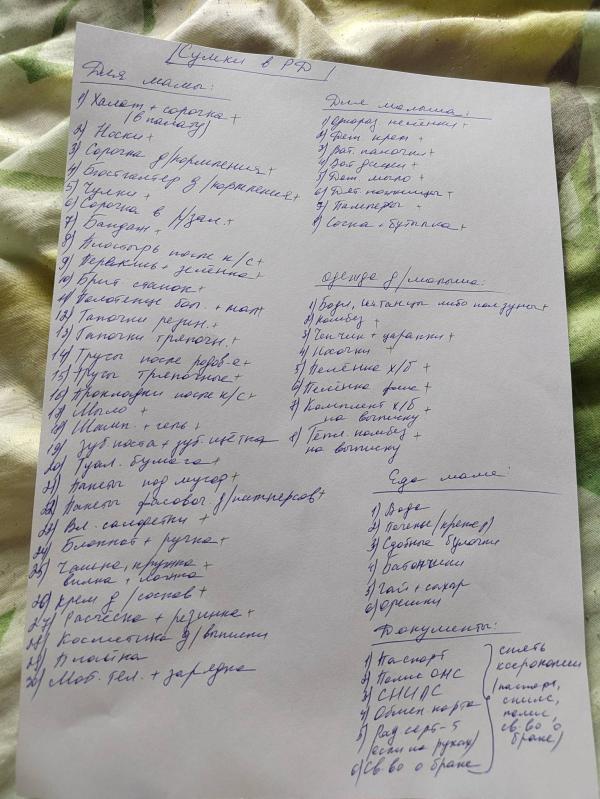 Сумки в РД
Для мамы:
1) Халат + сорочка +
(в палату)
2) Носки +
3) Сорочка д/кормления +
4) Бюстгалтер д/кормления +
5) Чулки +
6) Сорочка в р/зал. +
7) Бандаж +
8) Пластырь после к/с +
9) Перекись + зелёнка +
10) Брит станок +
11) Полотенце бол. + мал +
12) Тапочки резин. +
13) Тапочки тряпочн. +
14) Трусы после родов-е +
15) Трусы тряпочные +
16) Прокладки после к/с +
17) Мыло +
18) Шамп. + гель +
19) Зуб паста + зуб щётка
20) Туал. бумага +
21) Пакеты под мусор +
22) Пакеты фасовоч д/памперсов +
23) Вл. салфетки +
24) Блокнот + ручка +
25) Чашка, кружка +
вилка + ложка
26) Крем д/сосков +
27) Расчёска + резинка +
28) Косметика д/выписки
29) Плойка
30) Моб. тел. + зарядка
Для малыша:
1) Однораз пелёнки +
2) Дет крем +
3) Ват. палочки +
4) Ват диски +
5) Дет мыло +
6) Дет ножницы +
7) Памперсы +
8) Соска + бутылка +
Одежда д/малыша:
1) Боди, штанцы либо ползуны +
2) Комбез +
3) Чепчик + царапки +
4) Носочки +
5) Пелёнка х/б +
6) Пелёнка флис +
7) Комплект х/б +
на выписку
8) Тепл. комбез +
на выписку
Еда маме:
1) Вода
2) Печенье (крекер)
3) Сдобные булочки
4) Батончики
5) Чай + сахар
6) Орешки
Документы:
1) Паспорт
2) Полис ОМС
3) СНИЛС
4) Обмен карта
5) Род серт-т
(если на руках)
6) Св. во о браке
снять
ксерокопии
(паспорт,
снилс,
полис,
св. во о
браке)